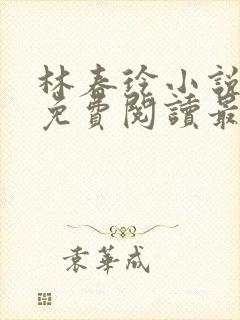 林春徐小說
免費閱讀最
袁華成